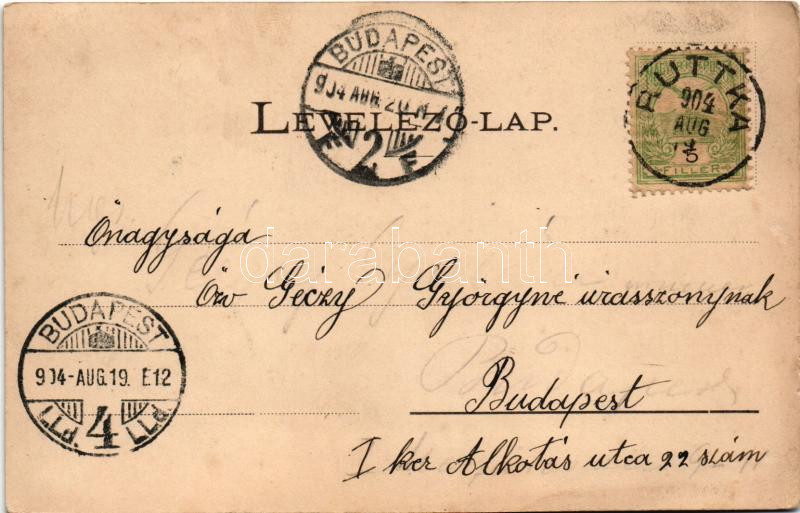 BUDAPEST
904 AUG. 20
2
LEVELEZŐ-LAP.
RUTTKA
904
AUG
5
FILLÉR
Őnagysága
Özv Géczy Györgyné úrasszonynak
darabanth
BUDAPEST
904-AUG.19. E12
4
Budapest
I ker Alkotás utca 22 szám